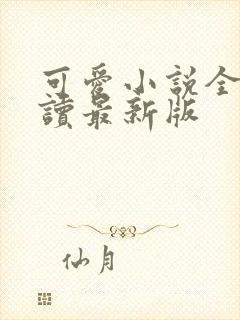 可愛小說全
讀最新版
仙月